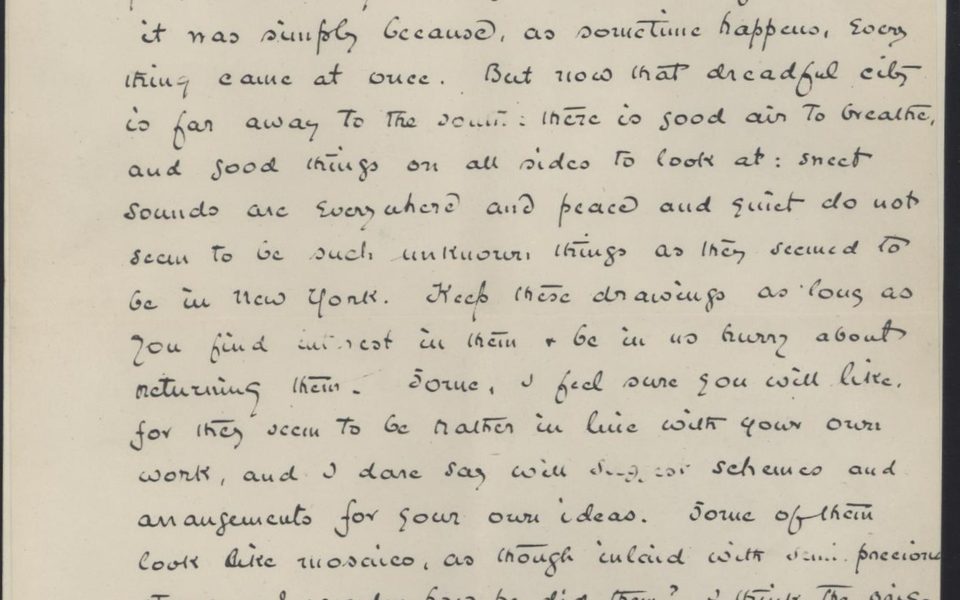 it was simply because, as sometime happens, every
thing came at once. But now that dreadful city
is far away to the south: there is good air to breathe,
and good things on all sides to look at: sweet
sounds are everywhere and peace and quiet do not
seem to be such unknown things as they seemed to
be in New York. Keep these drawings as long as
you find interest in them & be in no hurry about
returning them. Some, I feel sure you will like,
for they seem to be rather in line with your own
work, and I dare say will suggest schemes and
arrangements for your own ideas. Some of them
look like mosaics, as though inlaid with semi precious
how he did them? I think the